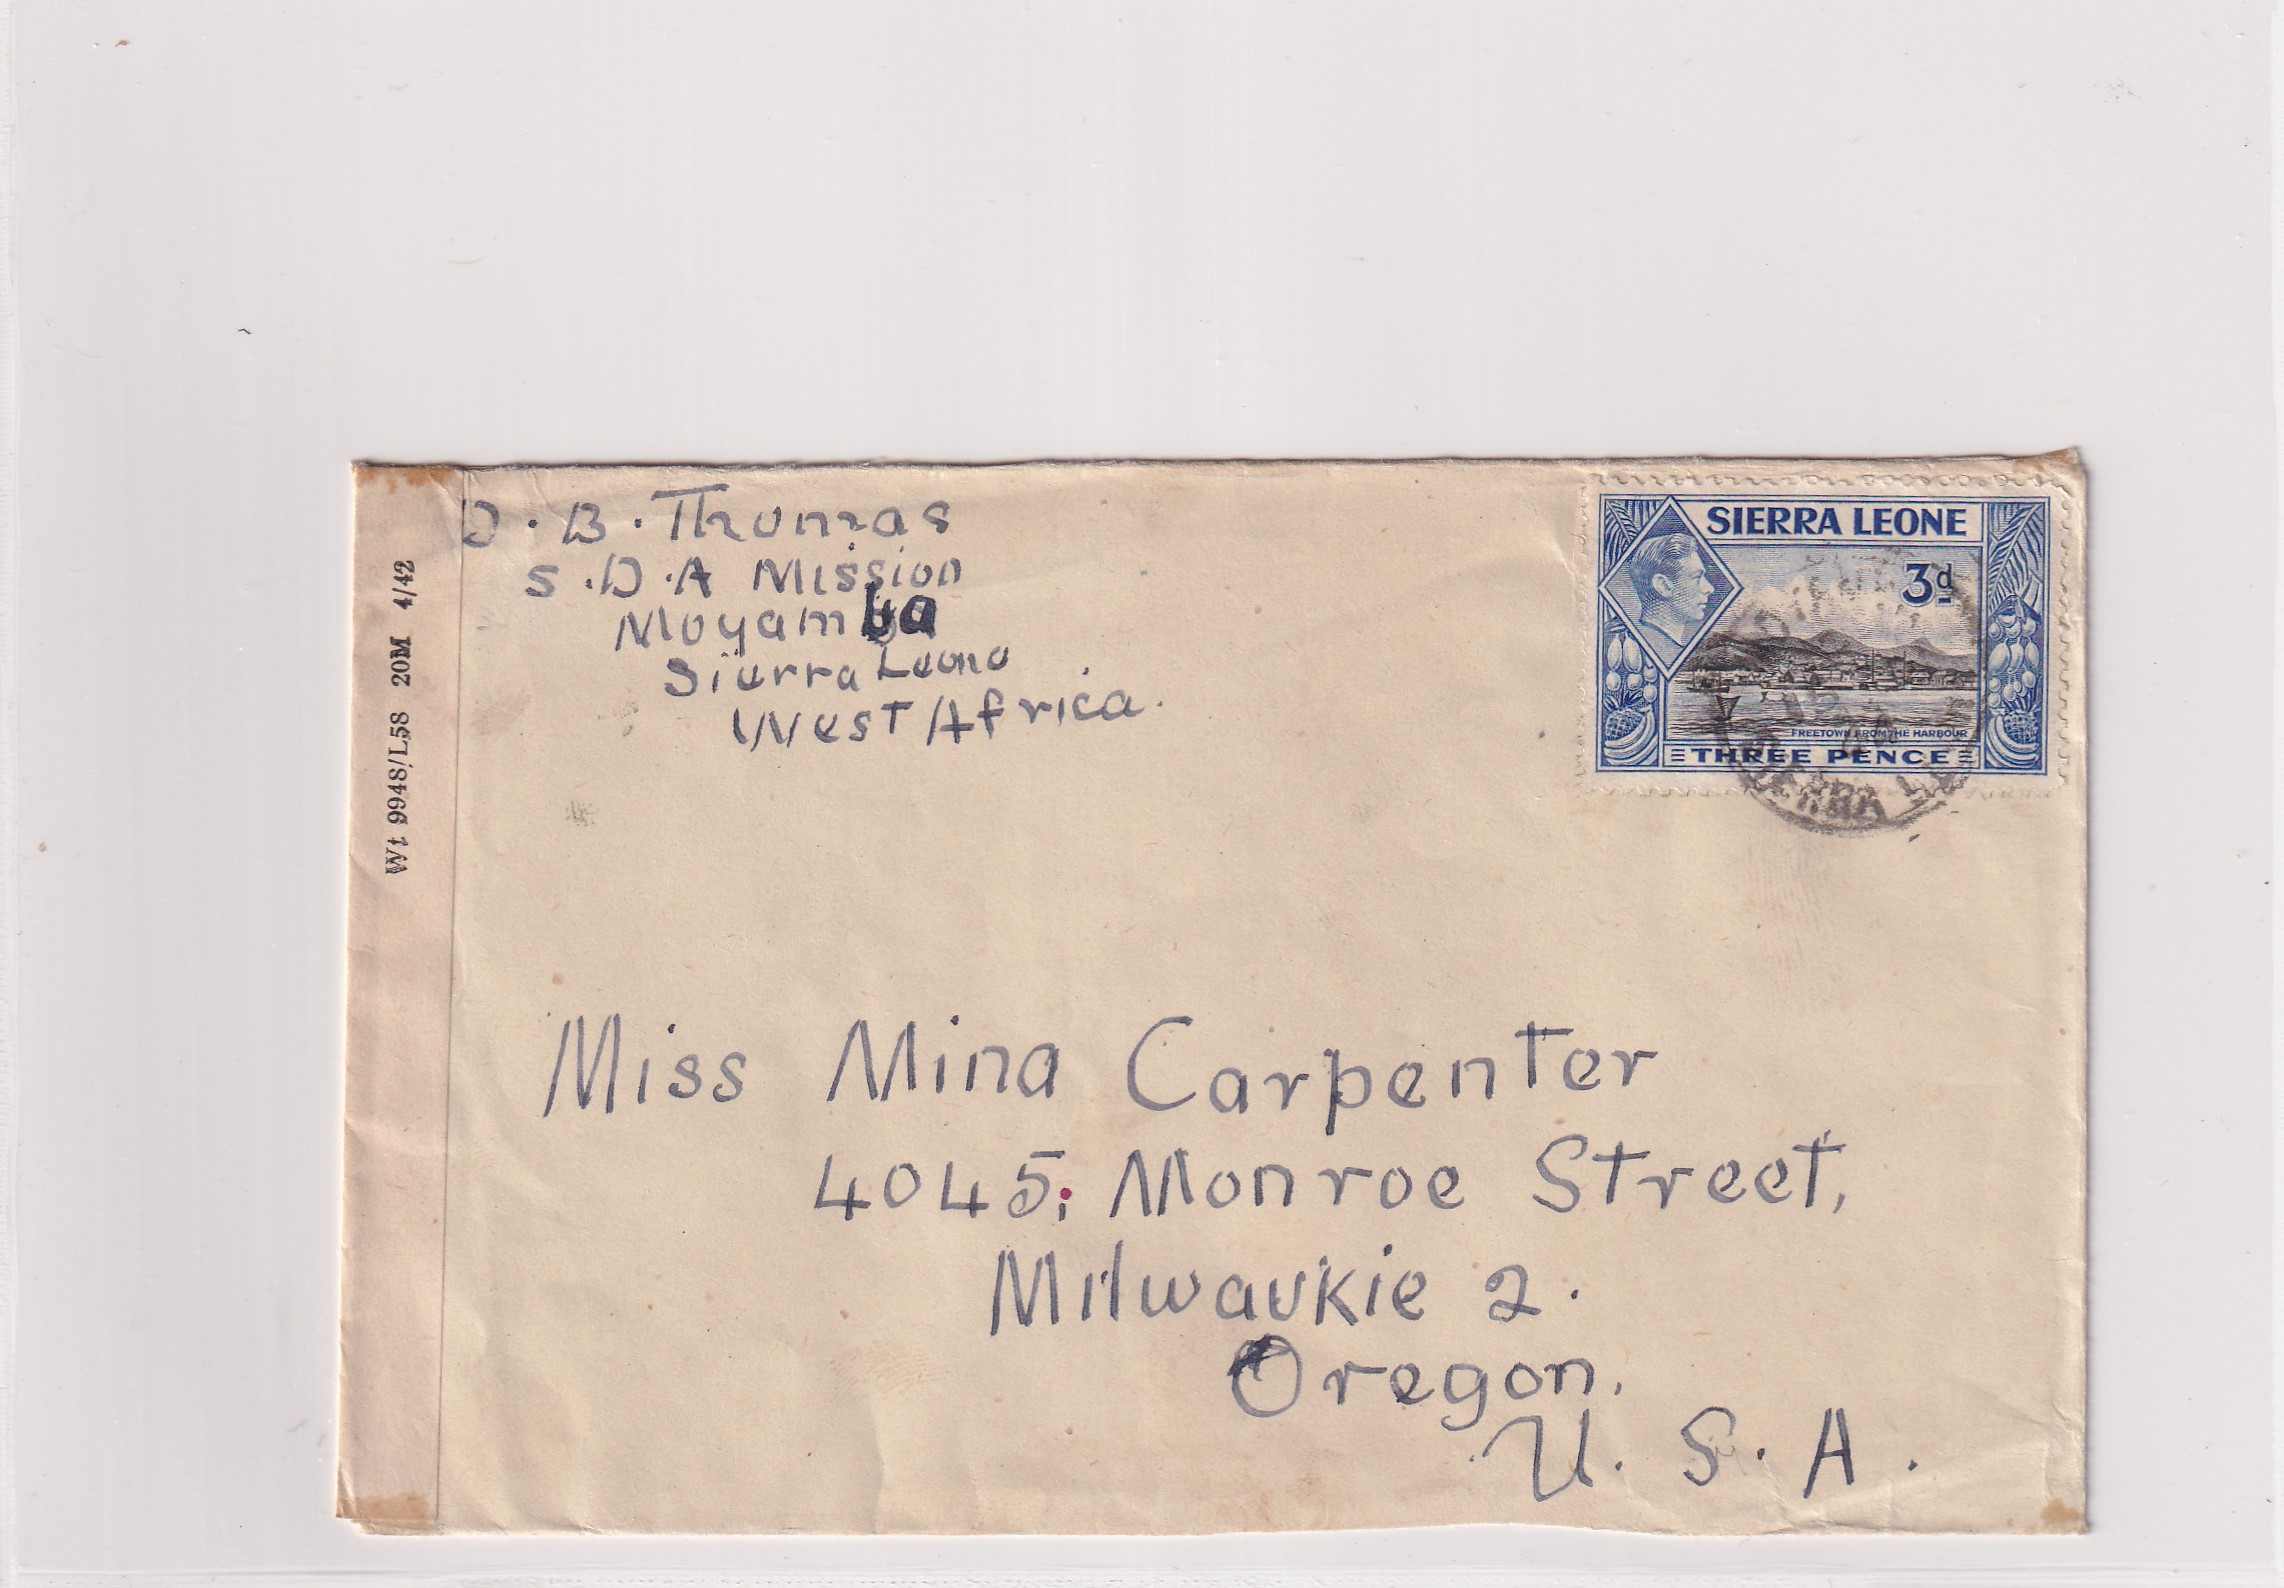 D. B. Thomas
S. D. A Mission
Moyamba
Sierra Leone
West Africa.
SIERRA LEONE
3d
FREETOWN FROM THE HARBOUR
THREE PENCE
Wt 9948/L58 20M 4/42
Miss Mina Carpenter
4045; Monroe Street,
Milwaukie 2.
Oregon.
U. S. A.